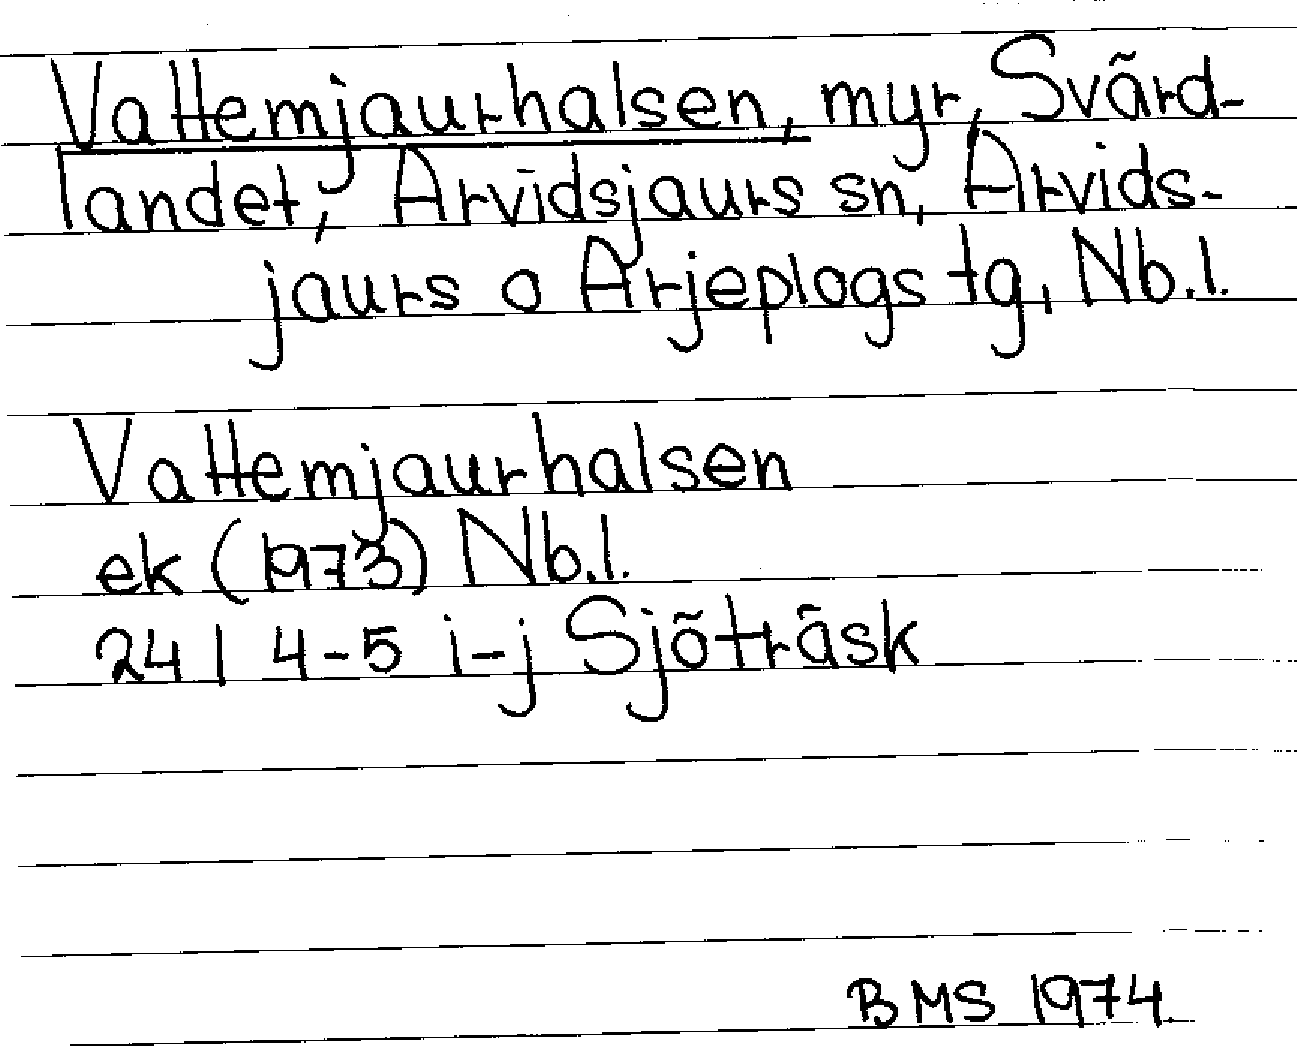 Vattemjaurhalsen, myr, Svärd-
landet, Arvidsjaurs sn, Arvids-
jaurs o Arjeplogs tg, Nb.l.
Vattemjaurhalsen
ek (1973) Nb.l.
24 I 4-5 i-j Sjöträsk
BMS 1974.